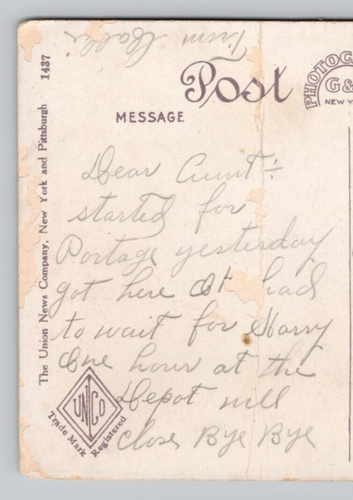 From Callie
Post
PHOTOC
G &
NEW Y
MESSAGE
1437
The Union News Company, New York and Pittsburgh
Dear Aunt :-
started for
Portage yesterday
got here at had
to wait for Harry
One hour at the
Depot will
close Bye Bye
UNCO
Trade Mark Registered